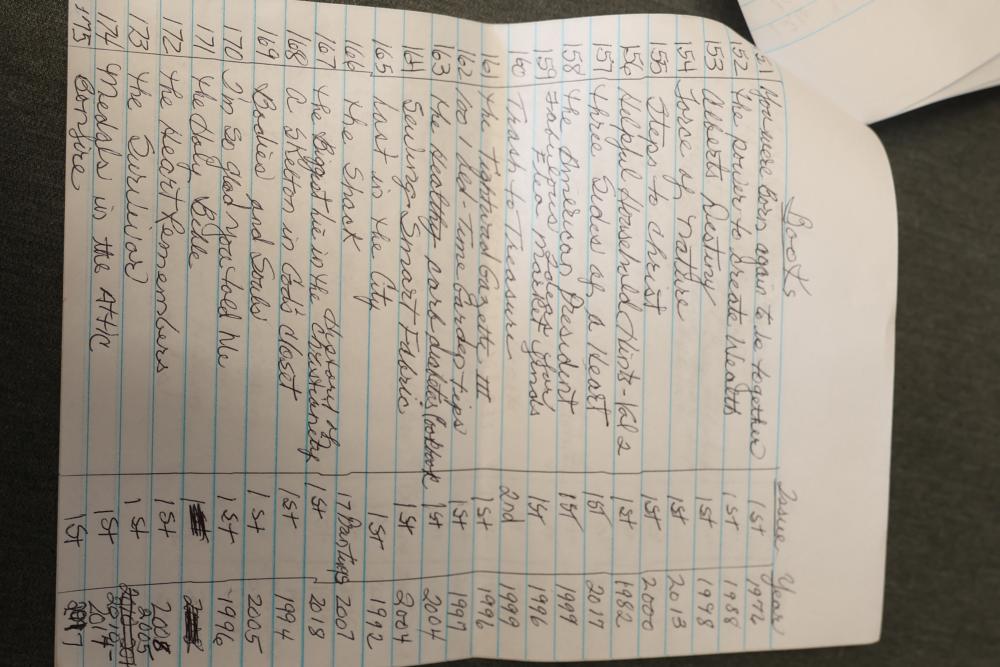 Books Issue Year
151 You were Born again to be together 1st 1976
152 The power to Create Wealth 1st 1988
153 Alberts Destiny 1st 1998
154 Force of Nature 1st 2013
155 Steps to Christ 1st 2000
156 Helpful Household Hints - Vol 2 1st 1982
157 Three Sides of a Heart 1st 2017
158 The American President 1st 1999
159 Fabulous Flea market finds 1st 1996
160 Trash to Treasure 2nd 1999
161 The Tightwad Gazette III 1st 1996
162 1001 Bed-Time Garden tips 1st 1997
163 The Healthy carb diabetes Cookbook 1st 2004
164 Sewing Smart Fabric 1st 2004
165 Last in the City 1st 1992
166 The Shack 17 Printings 2007
167 The Biggest lie in the History of Christianity 1st 2018
168 A Skelton in God's closet 1st 1994
169 Bodies and Souls 1st 2005
170 I'm So glad you told me 1st 1996
171 The Holy Bible
172 The Heart Remembers 1st 2008
173 The Survivor 1st 2005
174 Medals in the Attic 1st
175 Bonfire 1st 2017